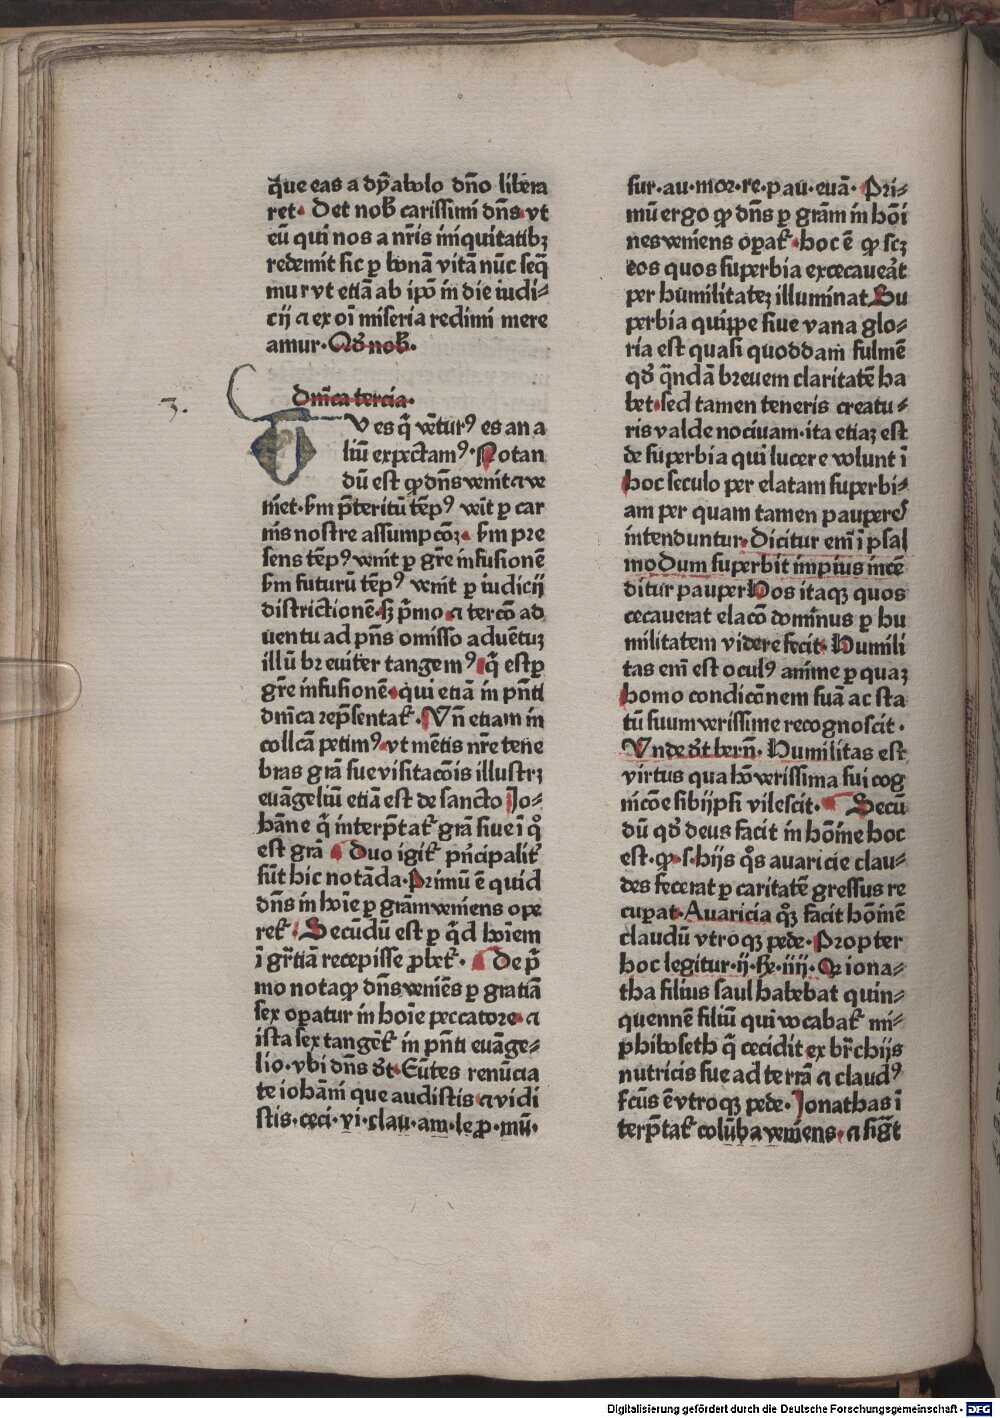 q̄ue eas a dyabolo dn̄o libera
ret. Det nob̄ carissimi dn̄s vt
eū qui nos a nr̄is iniquitatibꝫ
redemit sic ꝑ bonā vitā nūc seq̄
mur vt etiā ab ip̄o in die iudi⸗
cij ⁊ ex oī miseria redimi mere
amur. Qd̄ nob̄.
3.
Dn̄ica tercia.
TU es q̄ vētur⁹ es an a
liū expectam⁹. Notan
dū est ꝙ dn̄s venit ⁊ ve
niet. ẜm p̄teritū tēp⁹ vēit ꝑ car
nis nostre assumpcōꝫ. ẜm pre
sens tēp⁹ venit ꝑ gr̄e infusionē
ẜm futurū tēp⁹ veniet ꝑ iudicij
districtionē. sꝫ p̄mo ⁊ tercō ad
uentu ad pn̄s omisso aduētuꝫ
illū breuiter tangem⁹. q̄ est ꝑ
gr̄e infusionē. qui etiā in pn̄ti
dn̄ica rep̄sentat᷑. Vn̄ etiam in
collcā petim⁹. vt mētis nr̄e tene
bras grā sue visitacōis illustrꝫ
euāgeliū etiā est de sancto Jo⸗
hāne q̄ interp̄tat᷑ grā siue ī q̊
est grā Duo igit᷑ pn̄cipalit᷑
sūt hic notāda. Primū ē quid
dn̄s in hoīe ꝑ grām veniens ope
ret᷑. Secūdū est ꝑ q̄d hoīem
ī gr̄tiā recepisse ꝓbet᷑. De p̄
mo nota ꝙ dn̄s veniēs ꝑ gratiā
sex oꝑatur in hoīe peccatore. ⁊
ista sex tangēt᷑ in pn̄ti euāge⸗
lio. vbi dn̄s dt̄. Eūtes renūcia
te iohāni que audistis ⁊ vidi
stis. ceci. vi. clau. am. leꝓ. mū.
sur. au. mor. re. pau. euā. Pri⸗
mū ergo ꝙ dn̄s ꝑ grām in hōi
nes veniens oꝑat᷑. hoc ē ꝙ scꝫ
eos quos superbia excecaueāt
per humilitateꝫ illuminat Su
perbia quippe siue vana glo⸗
ria est quasi quoddam fulmē
qd̄ q̄ndā breuem claritatē ha
bet. sed tamen teneris creatu⸗
ris valde nociuam. ita etiaꝫ est
de superbia qui lucere volunt ī
hoc seculo per elatam superbi⸗
am per quam tamen pauperes
intenduntur. Dicitur enī ī psal
mo Dum superbit impius incē
ditur pauper Hos itaqꝫ quos
cecauerat elacō dominus ꝑ hu
militatem videre fecit. Humili
tas enī est ocul⁹ anime ꝑ quaꝫ
homo condicōnem suā ac sta
tū suum verissime recognoscit.
Vnde dt̄ bern̄. Humilitas est
virtus qua hō verissima sui cog
nicōe sibijpsi vilescit. Secū
dū qd̄ deus facit in hōine hoc
est. ꝙ. s. hijs q̊s auaricie clau⸗
des fecerat ꝑ caritatē gressus re
cuꝑat. Auaricia q̊ꝫ facit hōinē
claudū vtroqꝫ pede. Propter
hoc legitur. ij. Re. iiij. Q iona⸗
tha filius saul habebat quin⸗
quennē filiū qui vocabat᷑ mi⸗
phiboseth q̄ cecidit ex br̄chijs
nutricis sue ad terrā ⁊ claud⁹
fcūs ē vtroqꝫ pede. Jonathas ī
terp̄tat᷑ colūba veniens. ⁊ siḡt
Digitalisierung gefördert durch die Deutsche Forschungsgemeinschaft - DFG